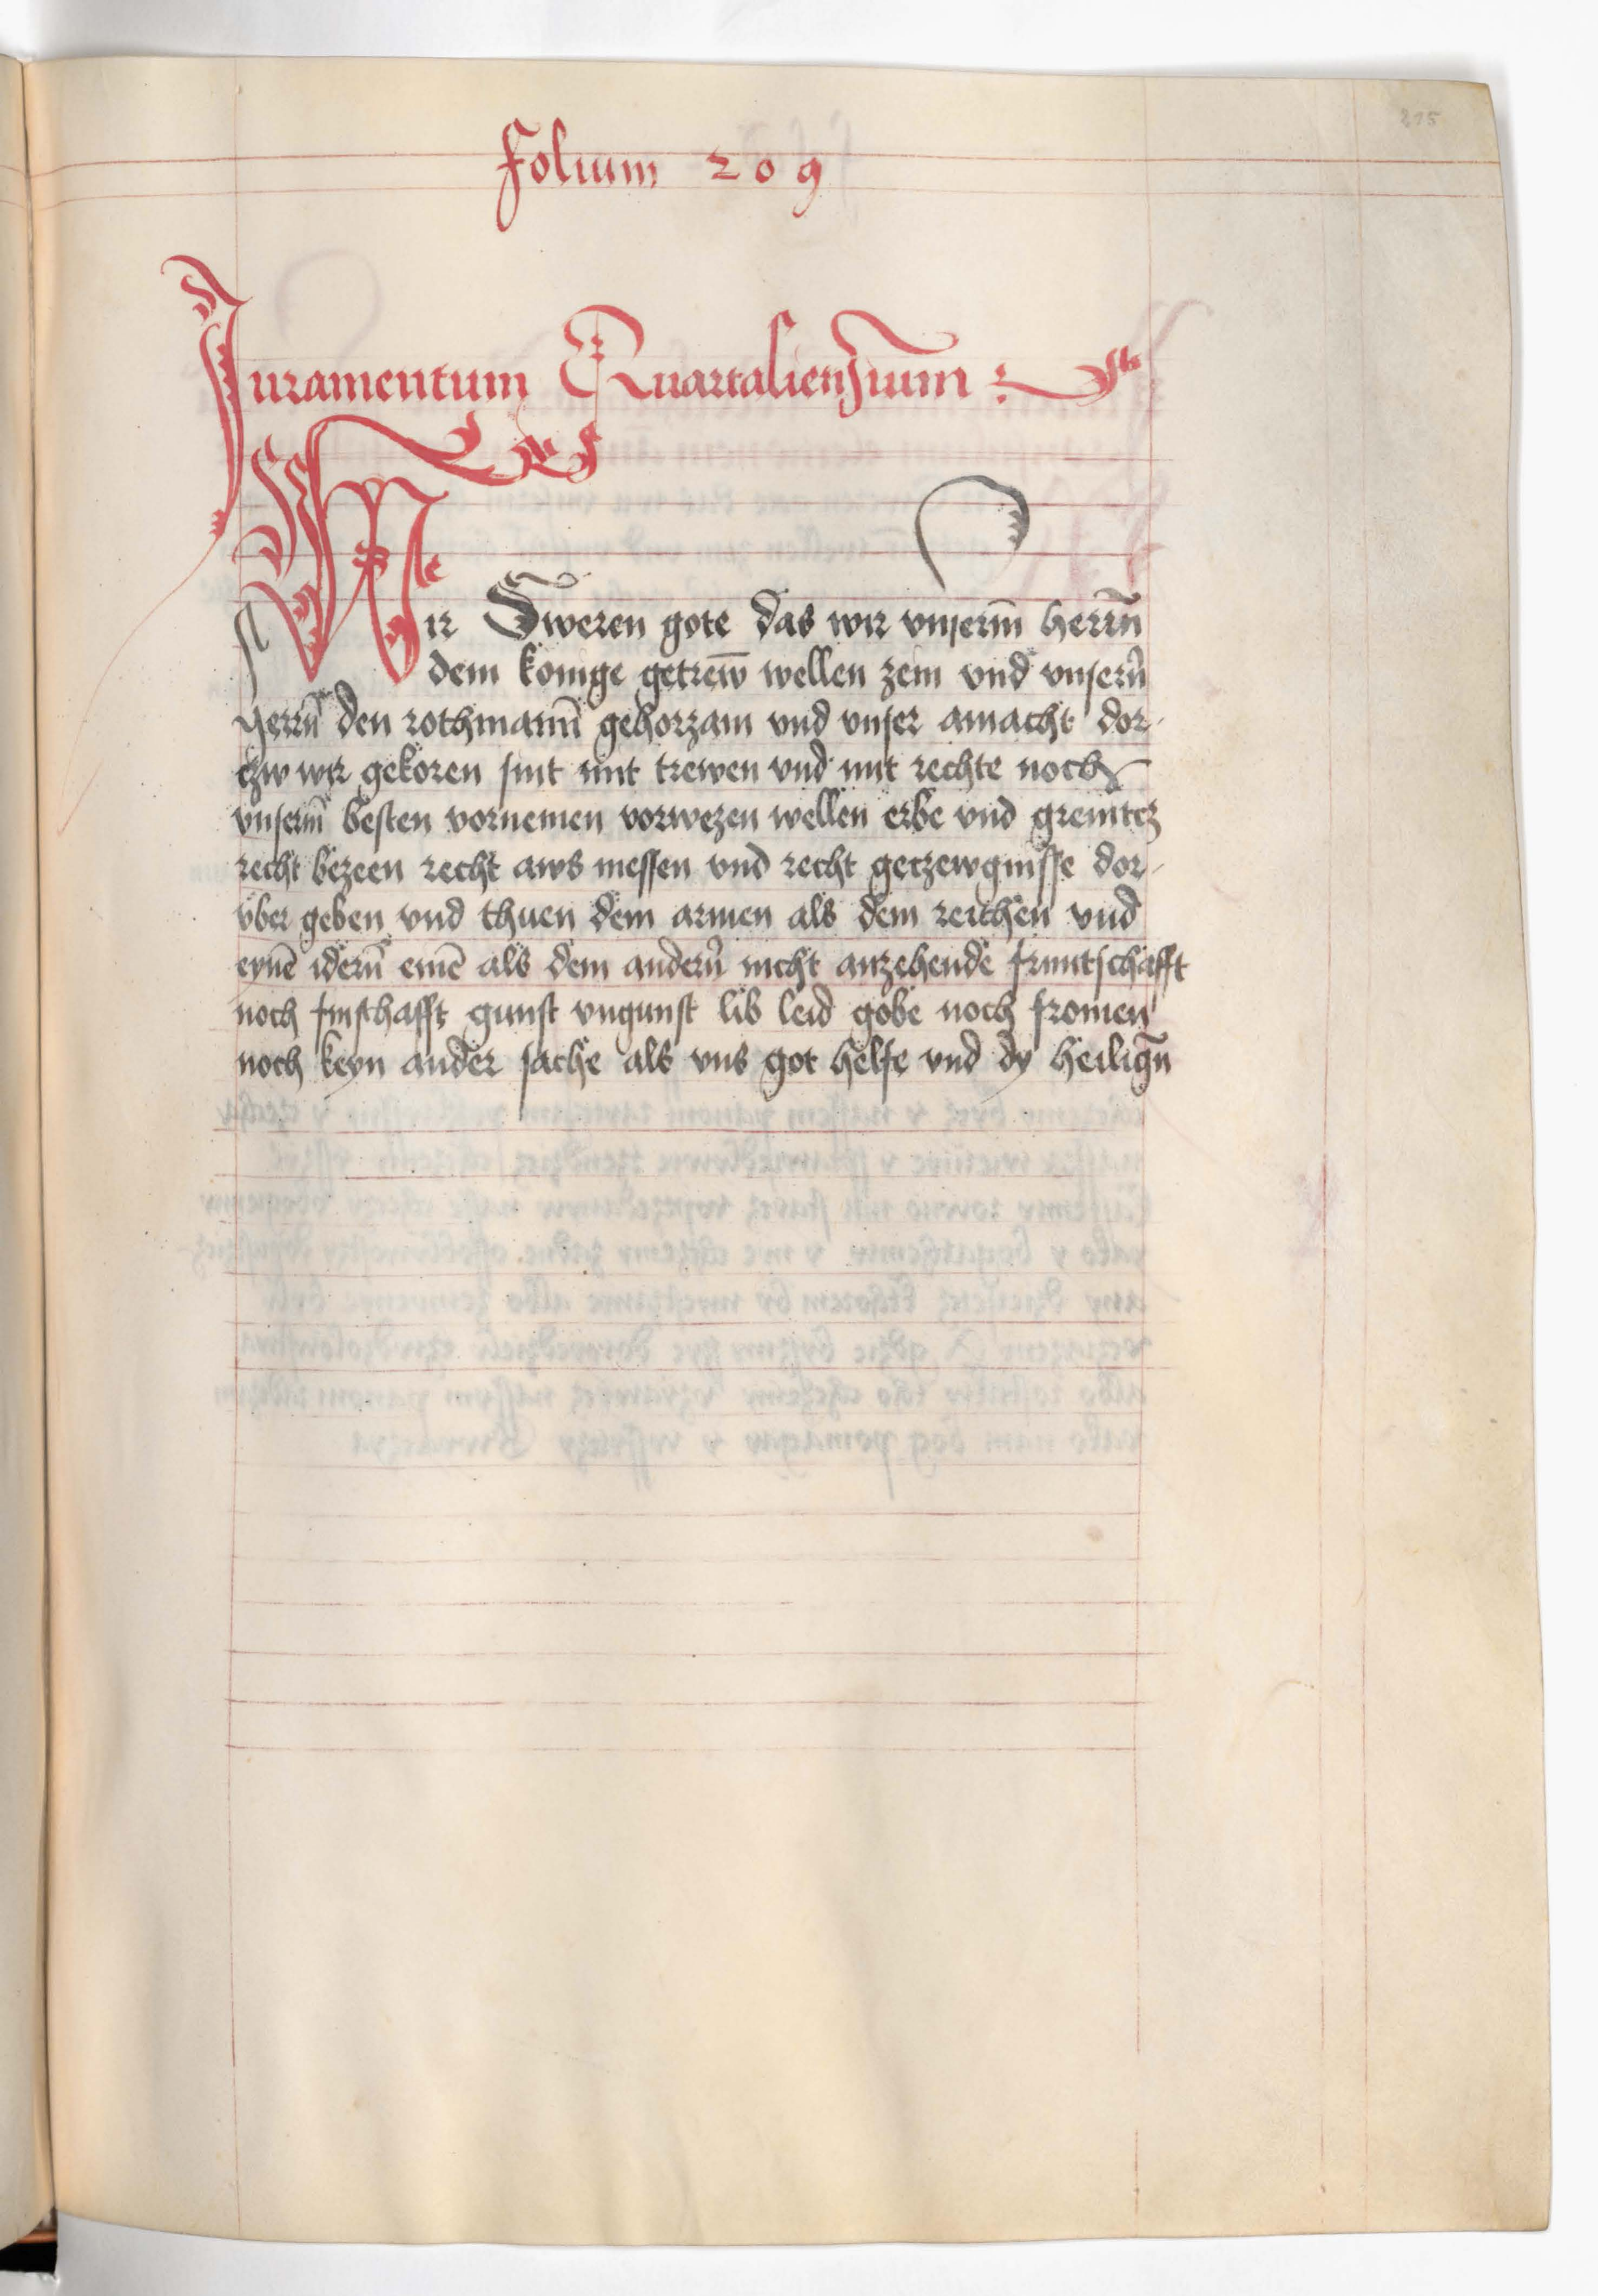 215
Folium 209
Juramentum Quartaliensium
Wir Sweren gote das wir vnserm̄ herrn̄
dem konige getrew̄ wellen zein vnd vnsern̄
herrn̄ den rothmann̄ gehorzam vnd vnser amacht dor-
czw wir gekoren sint mit trewen vnd mit rechte noch
vnserm̄ besten vornemen vorwezen wellen erbe vnd grenitcz
recht bezeen recht aws messen vnd recht geczewgnisse dor-
vber geben vnd thuen dem armen als dem reichen vnd
eynē idern̄ einē als dem andern̄ nicht anzehende fruntschafft
noch fintschafft gunst vngunst lib leid gobe noch fromen
noch keyn ander sache als vns got helfe vnd dy heilign̄